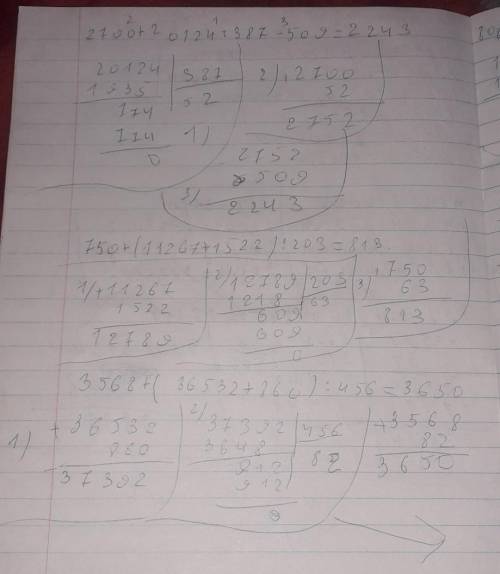 2700+20124:387-509=2243
20124 387 2) 2700
1935 52 52
774 2752
774 1)
0 2752
3) 509
2243
750+(11267+1522):203=813
1) +11267 2) 12789 203 3) 750
1522 1218 63 63
12789 609 813
609
0
3568+(36532+860):456=3650
1) +36532 2) 37392 456 +3568
860 3648 82 82
37392 912 3650
912
0